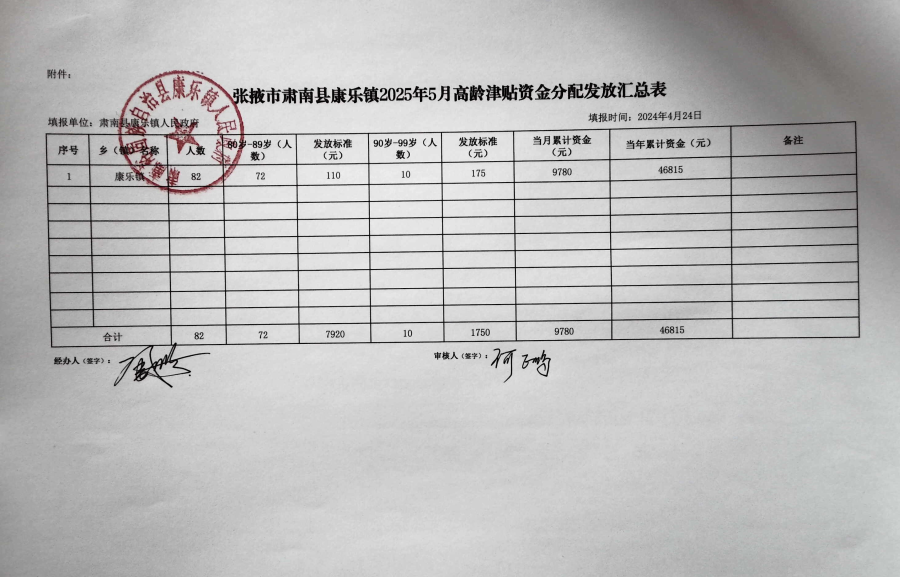 附件：
张掖市肃南县康乐镇2025年5月高龄津贴资金分配发放汇总表
填报单位：肃南县康乐镇人民政府 填报时间：2024年4月24日
序号 乡（镇）名称 人数 80岁-89岁（人数） 发放标准（元） 90岁-99岁（人数） 发放标准（元） 当月累计资金（元） 当年累计资金（元） 备注
1 康乐镇 82 72 110 10 175 9780 46815
合计 82 72 7920 10 1750 9780 46815
经办人（签字）： 审核人（签字）：